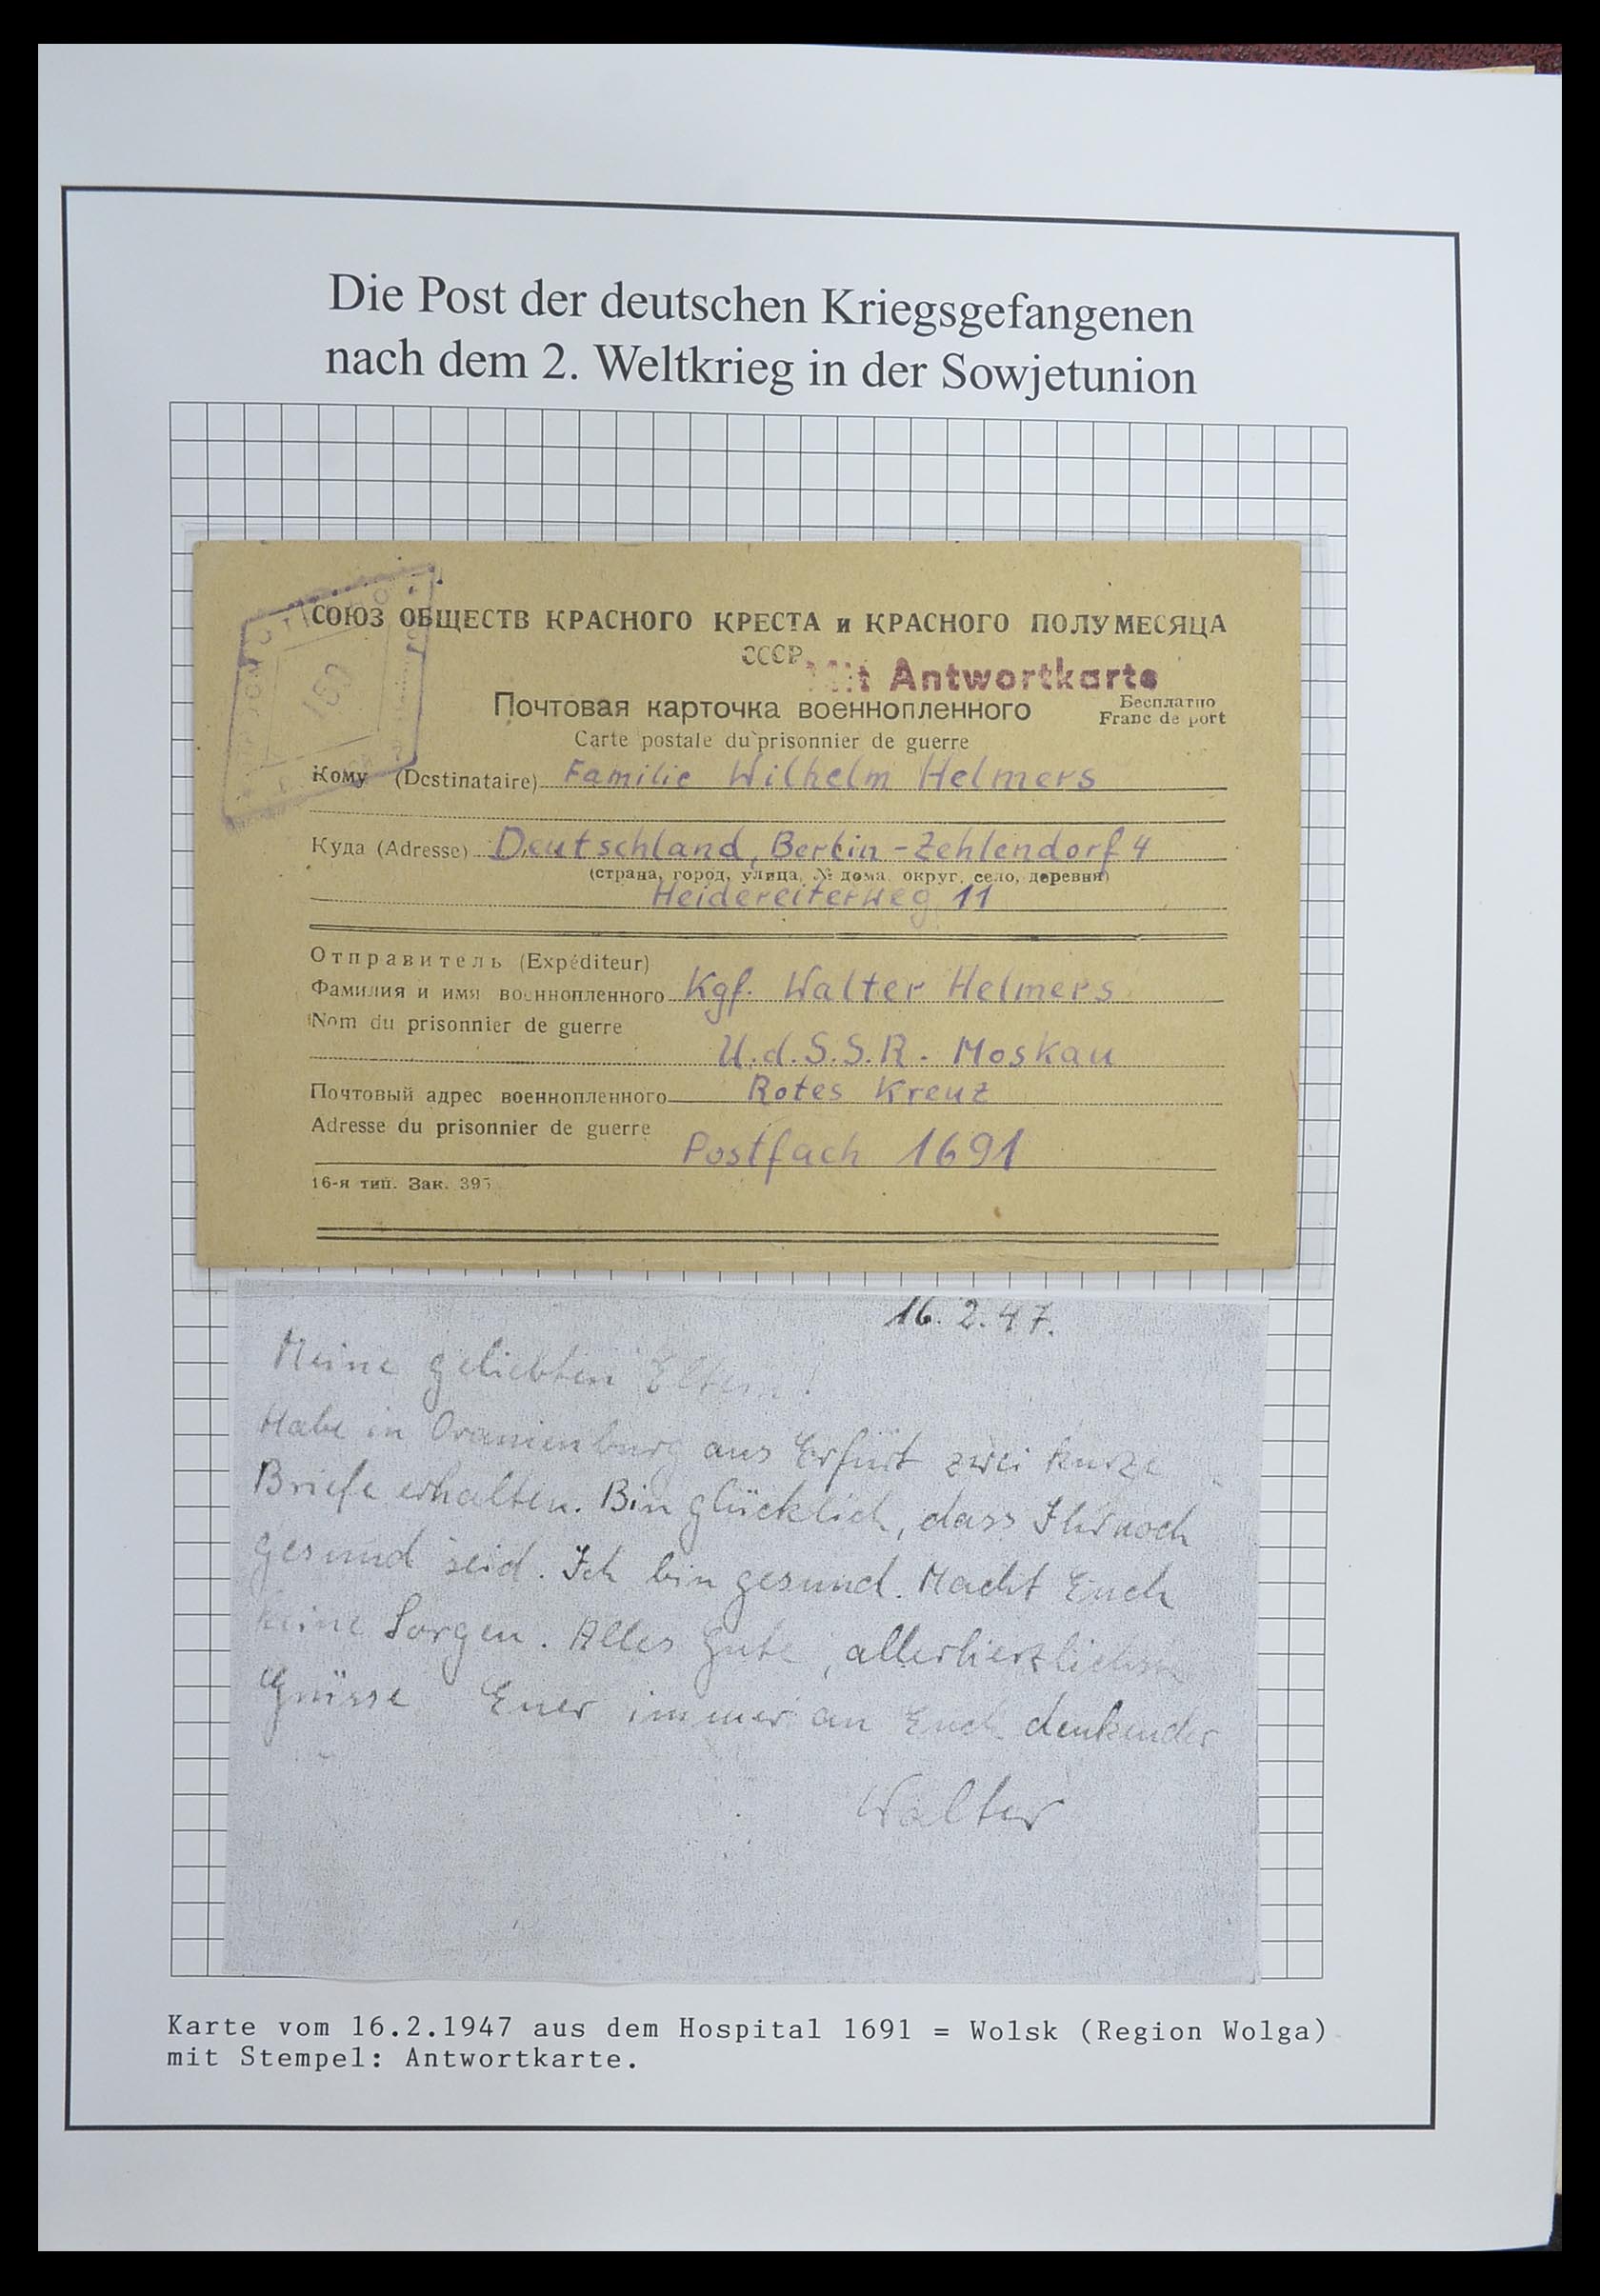 Die Post der deutschen Kriegsgefangenen
nach dem 2. Weltkrieg in der Sowjetunion
СОЮЗ ОБЩЕСТВ КРАСНОГО КРЕСТА и КРАСНОГО ПОЛУМЕСЯЦА
СССР
Mit Antwortkarte
Почтовая карточка военнопленного
Бесплатно
Franc de port
Carte postale du prisonnier de guerre
Кому (Destinataire) Familie Wilhelm Helmers
Куда (Adresse) Deutschland, Berlin-Zehlendorf 4
(страна, город, улица, № дома, округ, село, деревня)
Heidereiterweg 11
Отправитель (Expéditeur)
Фамилия и имя военнопленного Kgf. Walter Helmers
Nom du prisonnier de guerre
U.d.S.S.R. Moskau
Почтовый адрес военнопленного Rotes Kreuz
Adresse du prisonnier de guerre
Postfach 1691
16-я тип. Зак. 395
16.2.47.
Meine geliebten Eltern!
Habe in Oranienburg aus Erfurt zwei kurze
Briefe erhalten. Bin glücklich, dass Ihr noch
gesund seid. Ich bin gesund. Macht Euch
keine Sorgen. Alles Gute, allerherzlichste
Grüsse Euer immer an Euch denkender
Walter
Karte vom 16.2.1947 aus dem Hospital 1691 = Wolsk (Region Wolga)
mit Stempel: Antwortkarte.